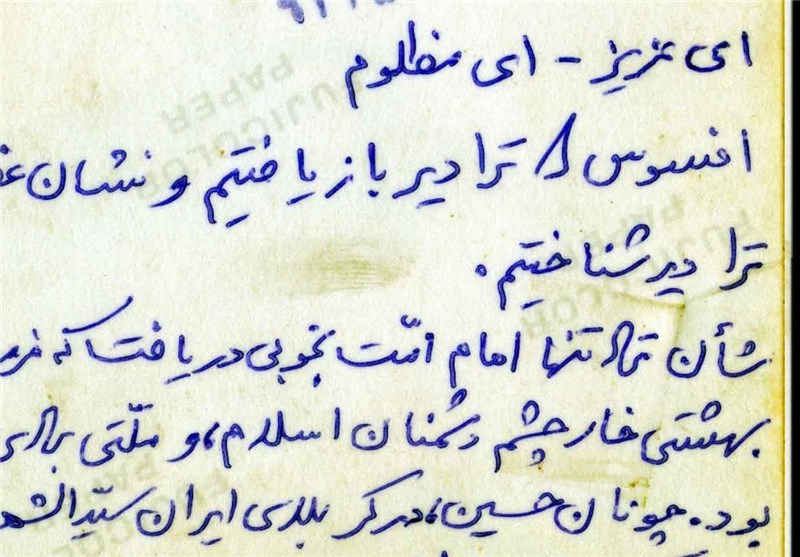 ای عزیز - ای مظلوم
افسوس که ترا دیر باز یافتیم و نشان
ترا دیر شناختیم.
شأن ترا تنها امام امّت بخوبی دریافت که فرمود
بهشتی خار چشم دشمنان اسلام، و ملّتی برای
بود. چونان حسین، در کربلای ایران سیّدالشهد
FUJICOLOR
PAPER